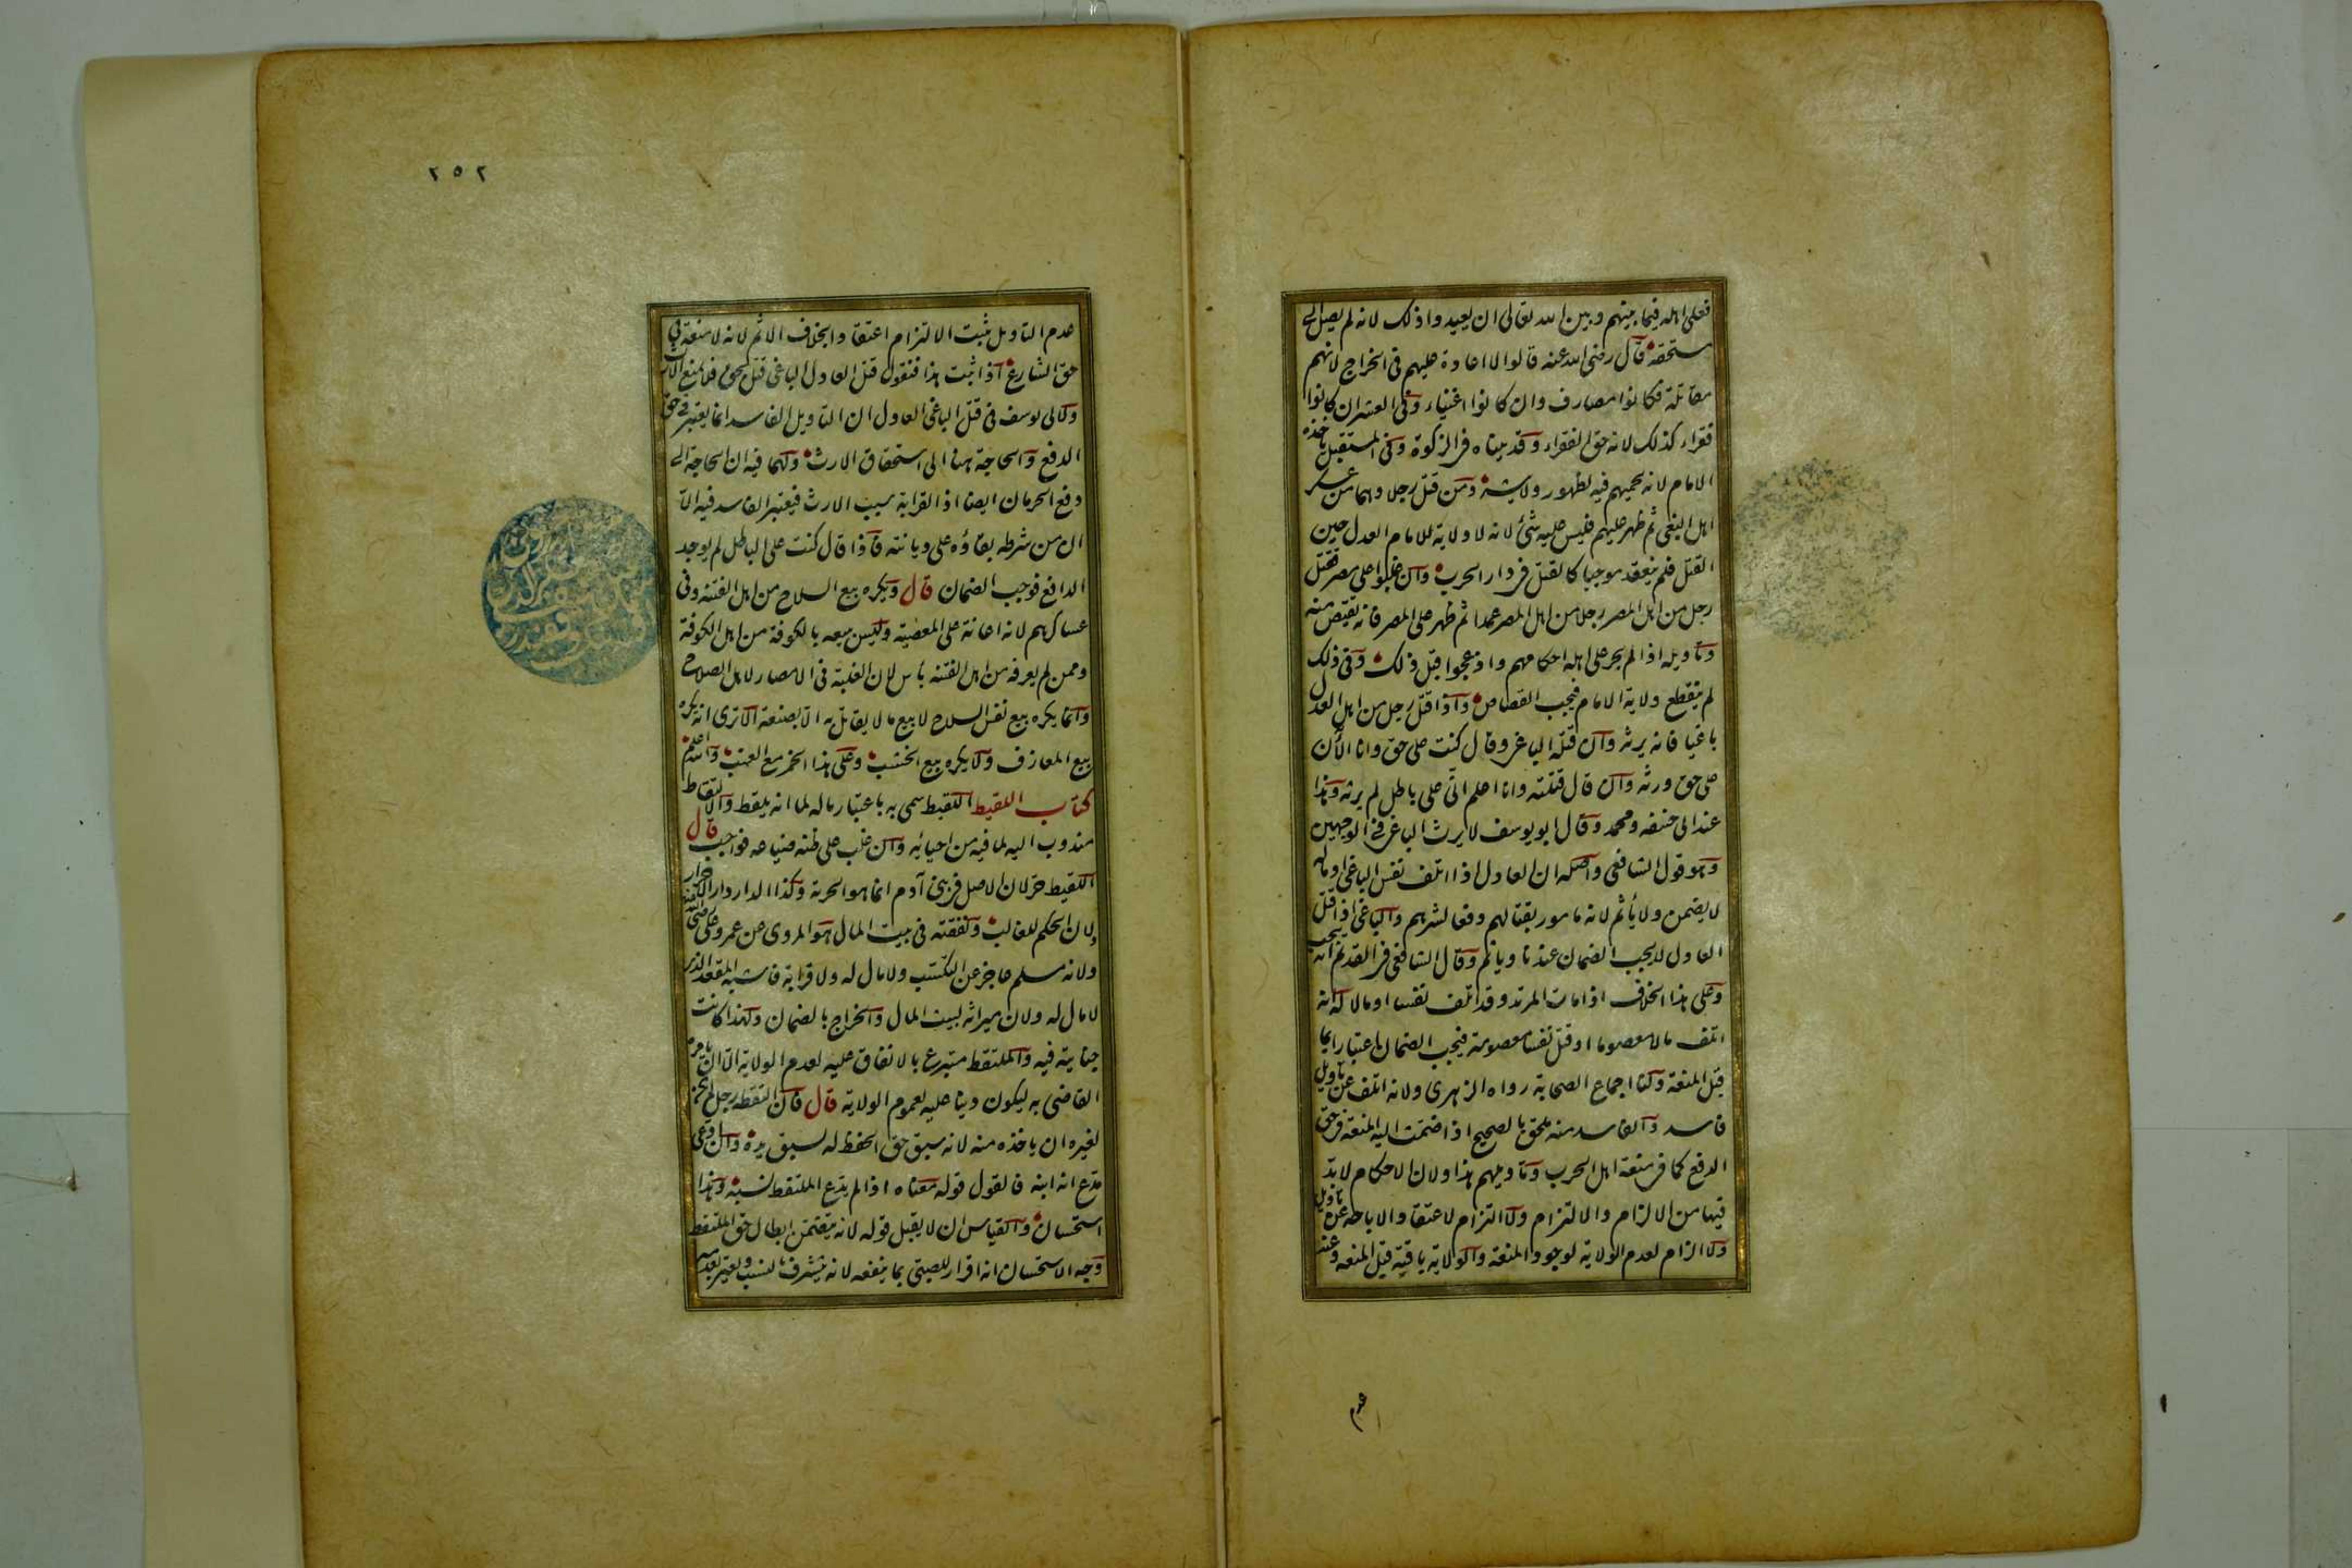 فعلى اهله فيما بينهم وبين الله تعالى ان يعيدوا ذلك لانه لم يصل الى
مستحقه قال رضى الله عنه قالوا لا اعادة عليهم فى الخراج لانهم
مقاتلة فكانوا مصارف وان كانوا اغنياء وفى العشر ان كانوا
فقراء كذلك لانه حق الفقراء وقد بيناه فى الزكوة وفى المستقبل ياخذه
الامام لانه يحميهم فيه لظهور ولايته ومن قتل رجلا وهما من عسكر
اهل البغى ثم ظهر عليهم فليس عليه شئ لانه لا ولاية للامام العدل حين
القتل فلم ينعقد موجبا كالقتل فى دار الحرب وان غلبوا على مصر فقتل
رجل من اهل المصر رجلا من اهل المصر عمدا ثم ظهر على المصر فانه يقتص منه
وتاويله اذا لم يجر على اهله احكامهم وازعجوا قبل ذلك وفى ذلك
لم ينقطع ولاية الامام فيجب القصاص واذا قتل رجل من اهل العدل
باغيا فانه يرثه وان قتله الباغى وقال كنت على حق وانا الآن
على حق ورثه وان قال قتلته وانا اعلم انى على باطل لم يرثه وهذا
عند ابى حنيفه ومحمد وقال ابو يوسف لا يرث الباغى فى الوجهين
وهو قول الشافعى واصله ان العادل اذا اتلف نفس الباغى او ماله
لا يضمن ولا يأثم لانه مامور بقتالهم دفعا لشرهم والباغى اذا قتل
العادل لا يجب الضمان عندنا ويأثم وقال الشافعى فى القديم انه يجب
وعلى هذا الخلاف اذا مات المرتد وقد اتلف نفسا او مالا له انه
اتلف مالا معصوما او قتل نفسا معصومة فيجب الضمان اعتبارا بما
قبل المنعة ولنا اجماع الصحابة رواه الزهرى ولانه اتلف عن تاويل
فاسد والفاسد منه ملحق بالصحيح اذا ضمت اليه المنعة فى حق
الدفع كما فى منعة اهل الحرب وتاويلهم هذا ولان الاحكام لا بد
فيها من الالزام والالتزام ولا التزام لاعتقاد الاباحة عن تاويل
ولا الزام لعدم الولاية لوجود المنعة والولاية باقية قبل المنعه وعند
عدم
٢٥٢
عدم التاويل ثبت الالتزام اعتقادا بخلاف الاثم لانه لا منعة فى
حق الشارع اذا ثبت هذا فنقول قتل العادل الباغى قتل بحق فلا يمنع الارث
ولابى يوسف فى قتل الباغى العادل ان التاويل الفاسد انما يعتبر فى حق
الدفع والحاجة ههنا الى استحقاق الارث ولهما فيه ان الحاجة الى
دفع الحرمان ايضا اذ القرابة سبب الارث فيعتبر الفاسد فيه الا
ان من شرطه بقاؤه على ديانته فاذا قال كنت على الباطل لم يوجد
الدافع فوجب الضمان قال ويكره بيع السلاح من اهل الفتنه وفى
عساكرهم لانه اعانة على المعصية وليس ببيعه بالكوفة من اهل الكوفة
وممن لم يعرفه من اهل الفتنه باس لان الغلبة فى الامصار لاهل الصلاح
وانما يكره بيع نفس السلاح لا بيع ما لا يقاتل به الا بصنعة الا ترى انه يكره
بيع المعازف ولا يكره بيع الخشب وعلى هذا الخمر مع العنب والله اعلم
كتاب اللقيط اللقيط سمى به باعتبار ماله لما انه يلقط والالتقاط
مندوب اليه لما فيه من احيائه وان غلب على ظنه ضياعه فواجب قال
اللقيط حر لان الاصل فى بنى آدم انما هو الحرية وكذا الدار دار الاحرار
ولان الحكم للغالب ونفقته فى بيت المال هو المروى عن عمر وعلى رضى الله عنهما
ولانه مسلم عاجز عن التكسب ولا مال له ولا قرابة فاشبه المقعد الذى
لا مال له ولان ميراثه لبيت المال والخراج بالضمان ولهذا كانت
جنايته فيه والملتقط متبرع بالانفاق عليه لعدم الولاية الا ان يامره
القاضى به ليكون دينا عليه لعموم الولاية قال فان التقطه رجل لم يكن
لغيره ان ياخذه منه لانه سبق حق الحفظ له لسبق يده وان ادعى
مدع انه ابنه فالقول قوله معناه اذا لم يدع الملتقط نسبه وهذا
استحسان والقياس ان لا يقبل قوله لانه يتضمن ابطال حق الملتقط
وجه الاستحسان انه اقرار للصبى بما ينفعه لانه يتشرف بالنسب ويعير بعدمه